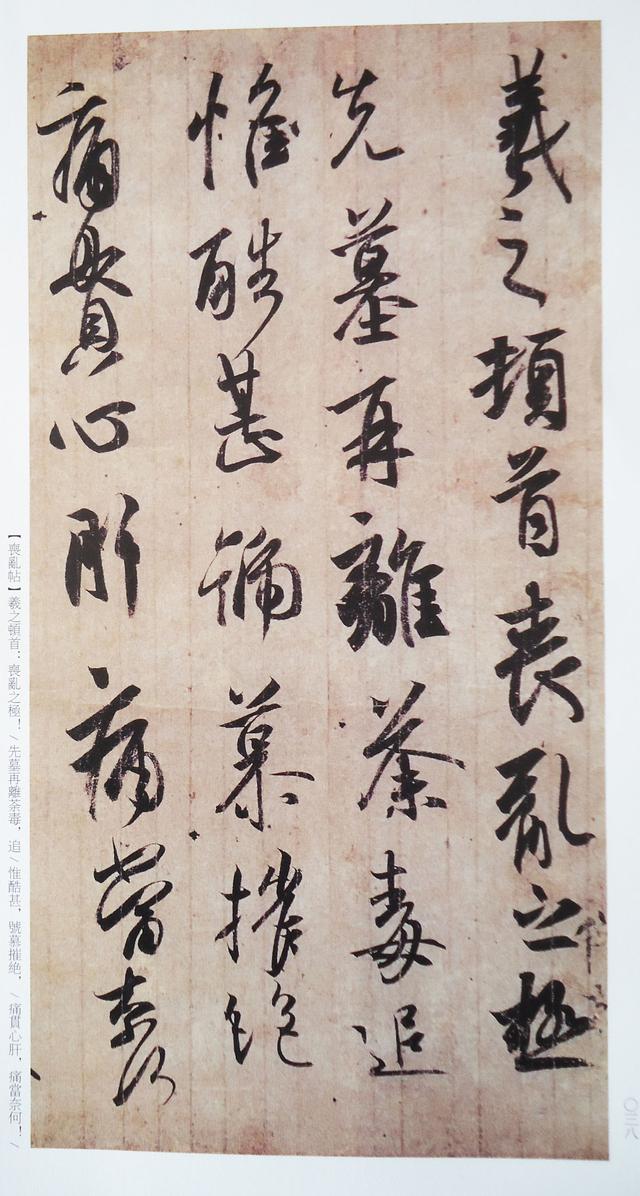 羲之頓首喪亂之極
先墓再離荼毒追
惟酷甚號慕摧絶
痛貫心肝痛當奈何
【喪亂帖】羲之頓首：喪亂之極！/先墓再離荼毒，追/惟酷甚，號慕摧絶，/痛貫心肝，痛當奈何！/
〇三八